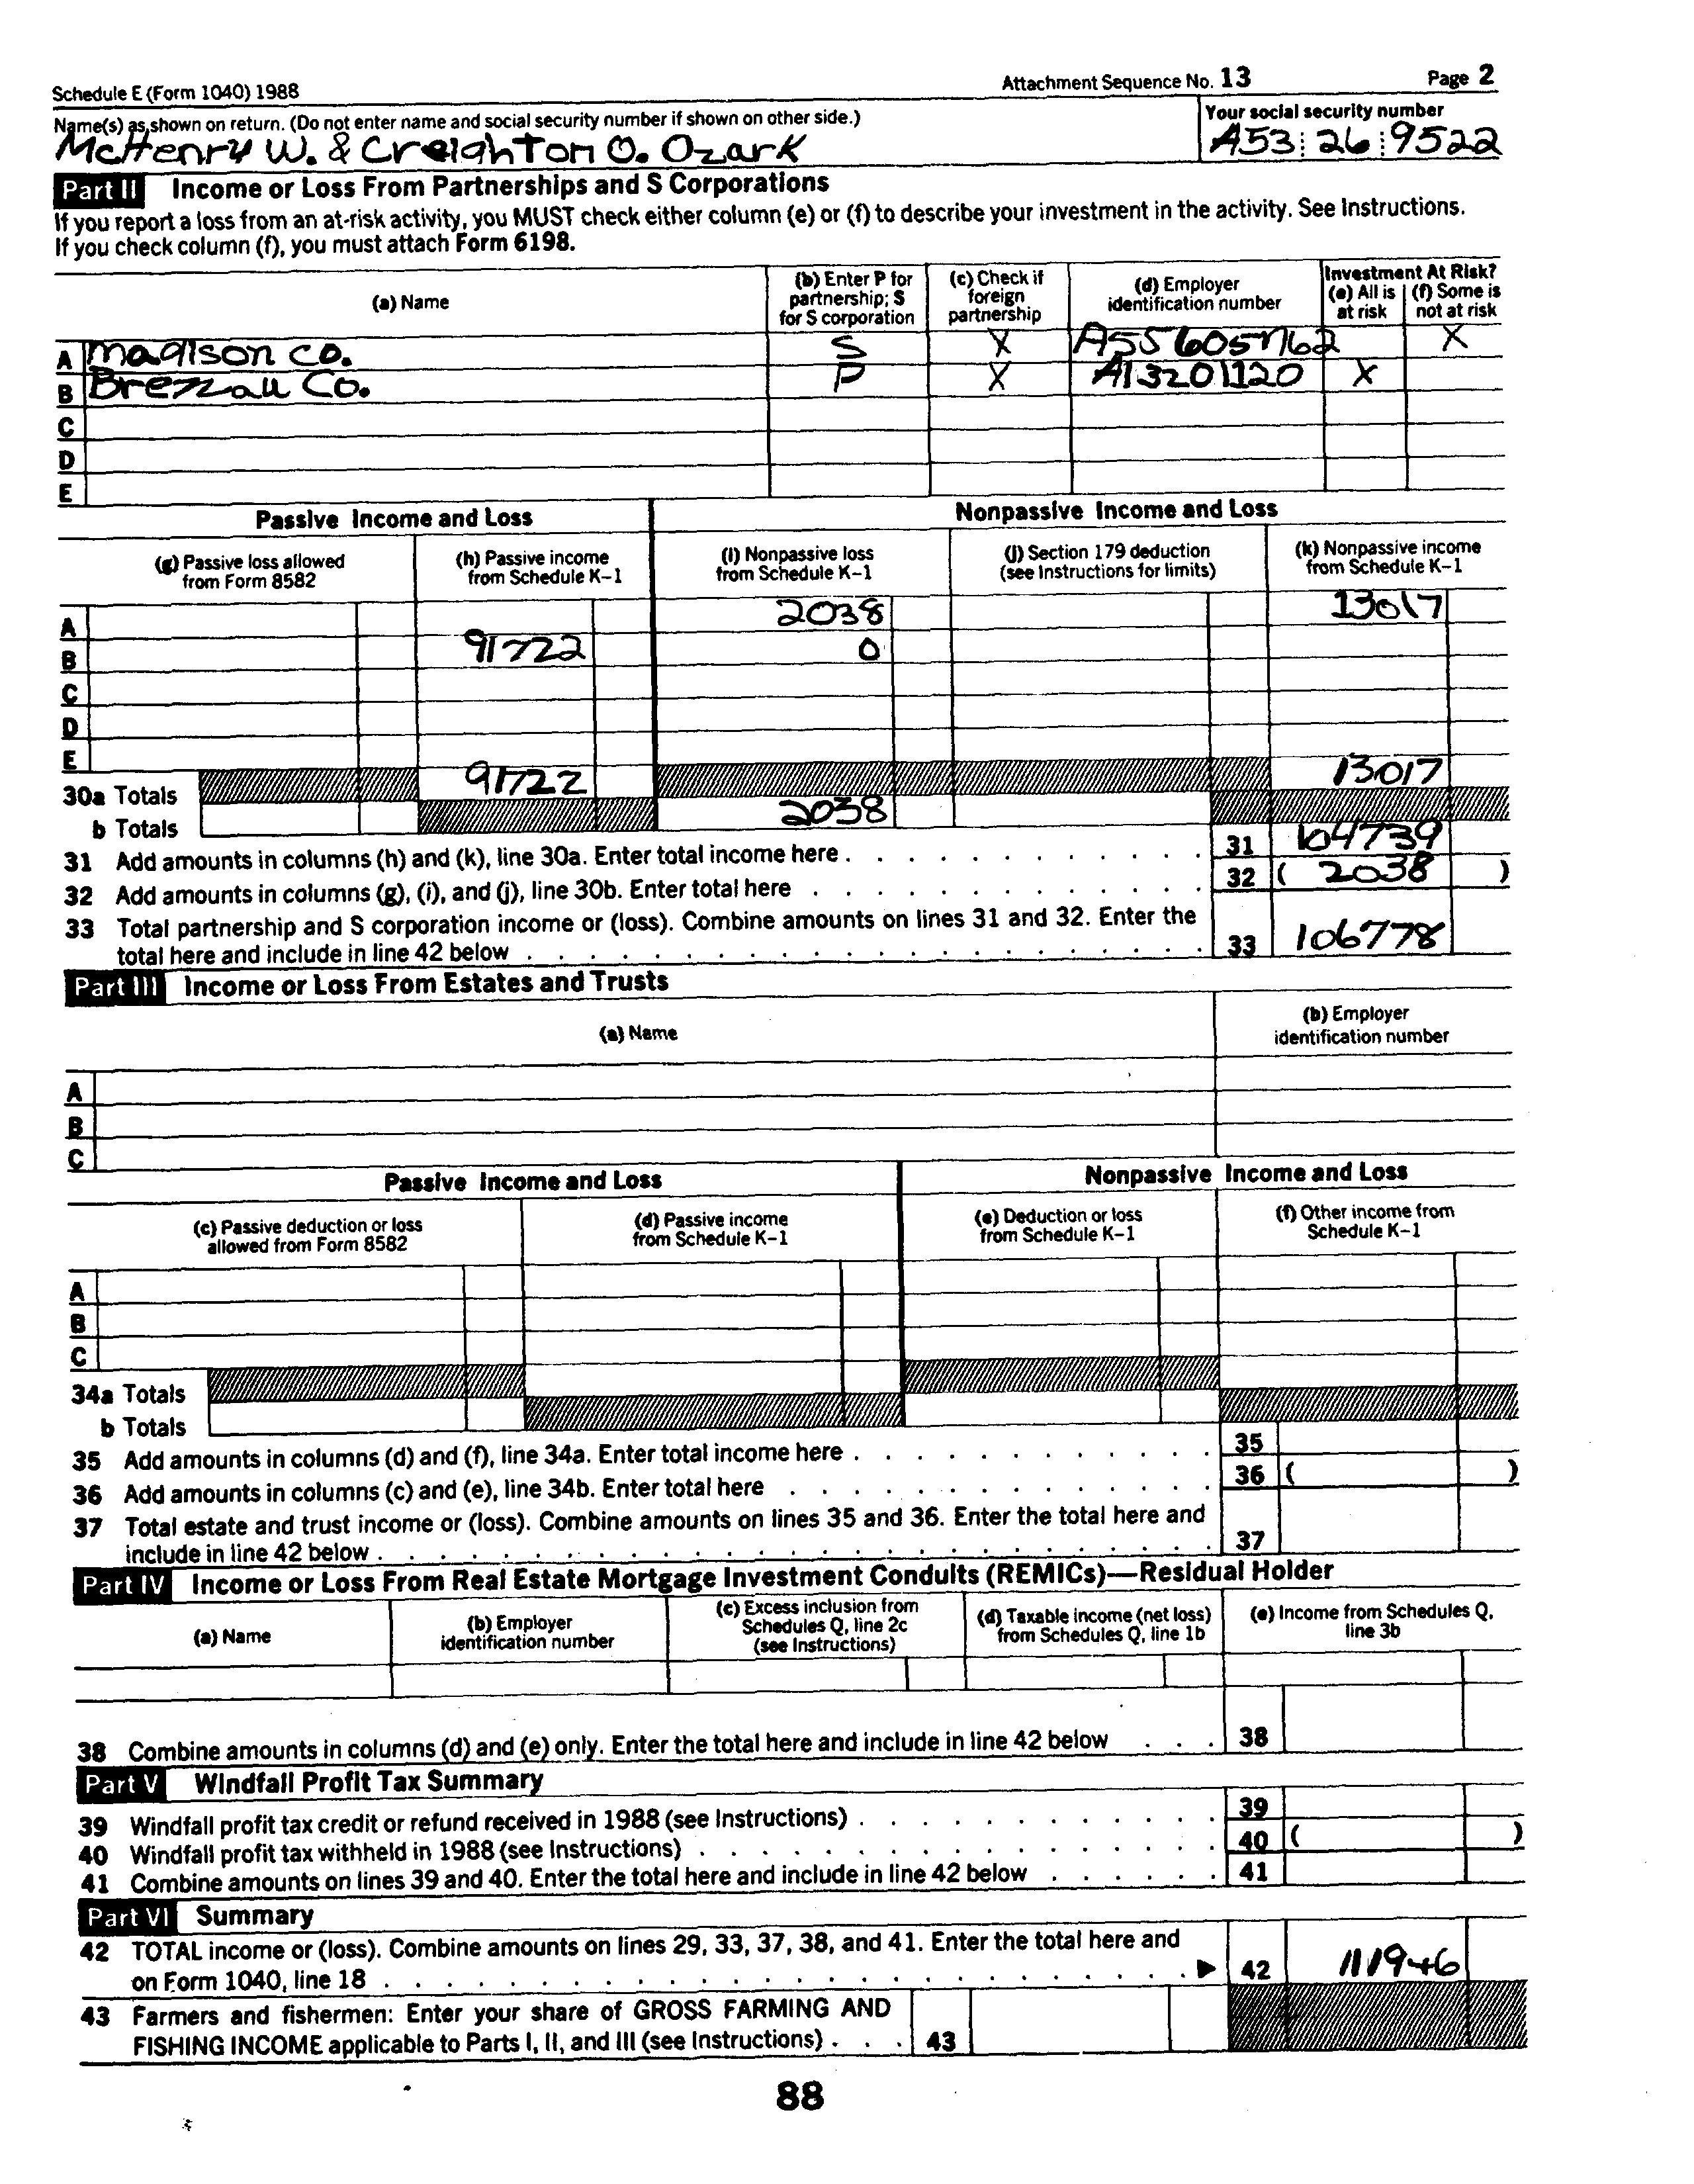 Schedule E (Form 1040) 1988 Attachment Sequence No. 13 Page 2
Name(s) as shown on return. (Do not enter name and social security number if shown on other side.) Your social security number
McHenry W. & Creighton O. Ozark A53 26 9522
Part II Income or Loss From Partnerships and S Corporations
If you report a loss from an at-risk activity, you MUST check either column (e) or (f) to describe your investment in the activity. See Instructions.
If you check column (f), you must attach Form 6198.
(a) Name (b) Enter P for partnership; S for S corporation (c) Check if foreign partnership (d) Employer identification number Investment At Risk? (e) All is at risk (f) Some is not at risk
A Madison Co. S X A55605762 X
B Brezzau Co. P X A13201120 X
C
D
E
Passive Income and Loss Nonpassive Income and Loss
(g) Passive loss allowed from Form 8582 (h) Passive income from Schedule K-1 (i) Nonpassive loss from Schedule K-1 (j) Section 179 deduction (see Instructions for limits) (k) Nonpassive income from Schedule K-1
A 2038 13017
B 91722 0
C
D
E
30a Totals 91722 13017
b Totals 2038
31 Add amounts in columns (h) and (k), line 30a. Enter total income here . 31 104739
32 Add amounts in columns (g), (i), and (j), line 30b. Enter total here 32 ( 2038 )
33 Total partnership and S corporation income or (loss). Combine amounts on lines 31 and 32. Enter the
total here and include in line 42 below 33 106778
Part III Income or Loss From Estates and Trusts
(a) Name (b) Employer identification number
A
B
C
Passive Income and Loss Nonpassive Income and Loss
(c) Passive deduction or loss allowed from Form 8582 (d) Passive income from Schedule K-1 (e) Deduction or loss from Schedule K-1 (f) Other income from Schedule K-1
A
B
C
34a Totals
b Totals
35 Add amounts in columns (d) and (f), line 34a. Enter total income here . 35
36 Add amounts in columns (c) and (e), line 34b. Enter total here 36 ( )
37 Total estate and trust income or (loss). Combine amounts on lines 35 and 36. Enter the total here and
include in line 42 below . 37
Part IV Income or Loss From Real Estate Mortgage Investment Conduits (REMICs)—Residual Holder
(a) Name (b) Employer identification number (c) Excess inclusion from Schedules Q, line 2c (see Instructions) (d) Taxable income (net loss) from Schedules Q, line 1b (e) Income from Schedules Q, line 3b
38 Combine amounts in columns (d) and (e) only. Enter the total here and include in line 42 below 38
Part V Windfall Profit Tax Summary
39 Windfall profit tax credit or refund received in 1988 (see Instructions) . 39
40 Windfall profit tax withheld in 1988 (see Instructions) . 40 ( )
41 Combine amounts on lines 39 and 40. Enter the total here and include in line 42 below 41
Part VI Summary
42 TOTAL income or (loss). Combine amounts on lines 29, 33, 37, 38, and 41. Enter the total here and
on Form 1040, line 18 . ▶ 42 111946
43 Farmers and fishermen: Enter your share of GROSS FARMING AND
FISHING INCOME applicable to Parts I, II, and III (see Instructions) . 43
88